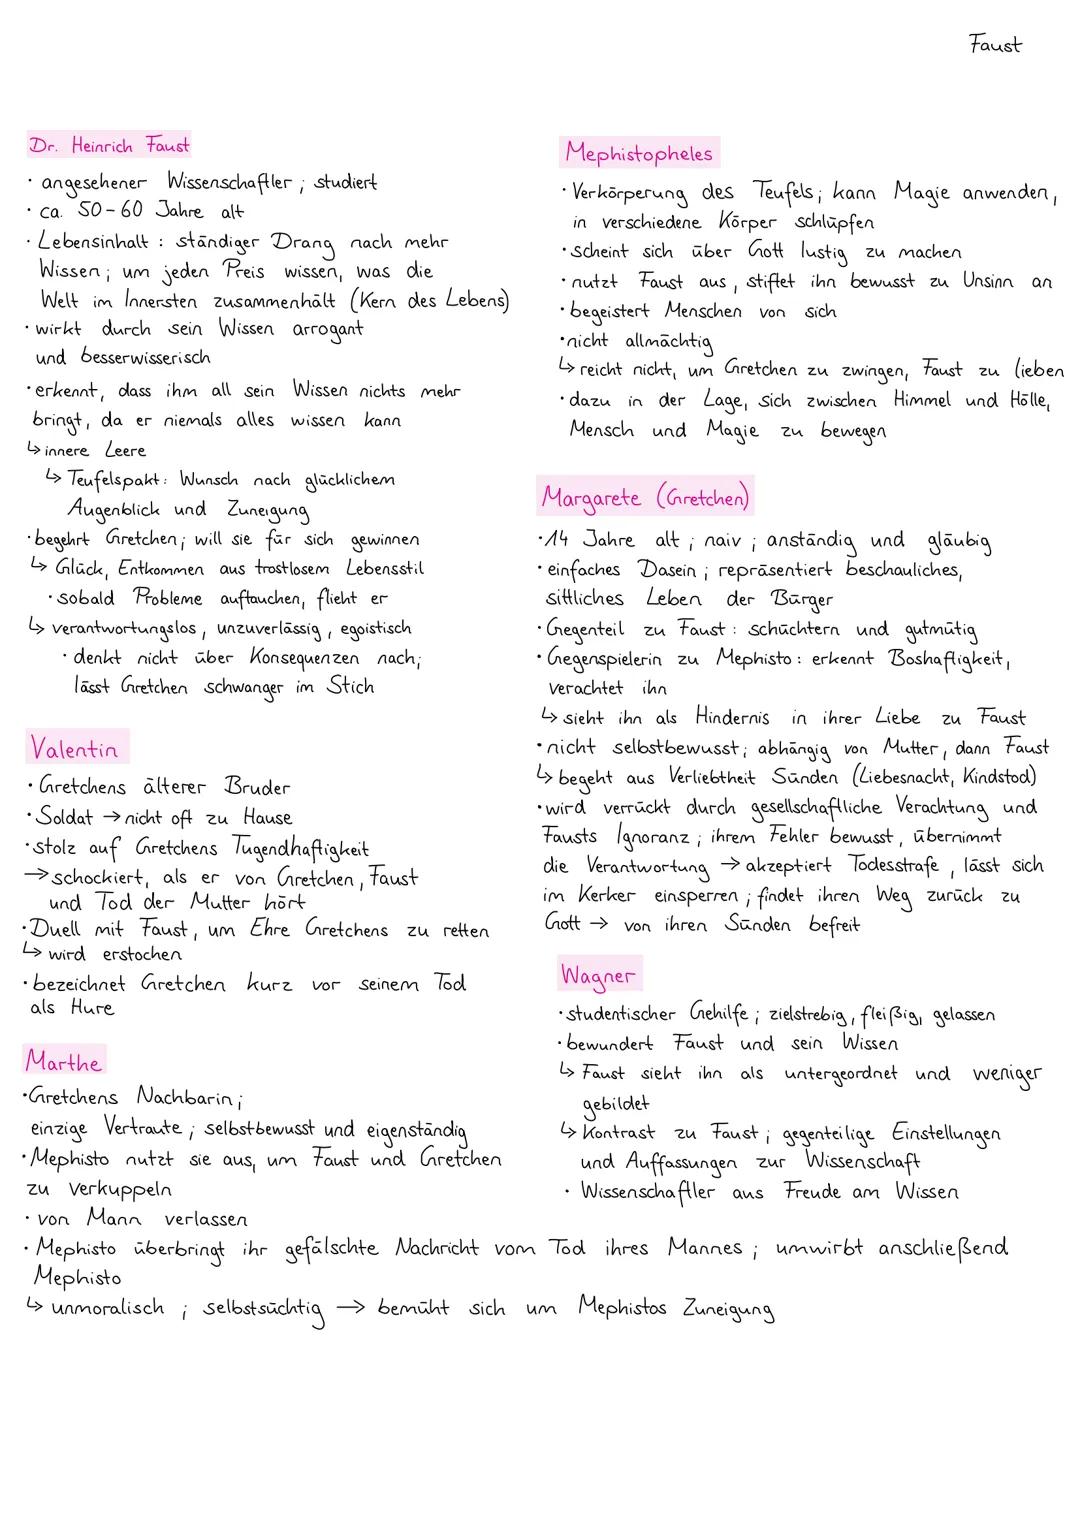 Faust
Dr. Heinrich Faust
· angesehener Wissenschaftler ; studiert
· ca. 50-60 Jahre alt
· Lebensinhalt : ständiger Drang nach mehr
Wissen ; um jeden Preis wissen, was die
Welt im Innersten zusammenhält (Kern des Lebens)
· wirkt durch sein Wissen arrogant
und besserwisserisch
· erkennt, dass ihm all sein Wissen nichts mehr
bringt, da er niemals alles wissen kann
↳ innere Leere
↳ Teufelspakt: Wunsch nach glücklichem
Augenblick und Zuneigung
· begehrt Gretchen ; will sie für sich gewinnen
↳ Glück, Entkommen aus trostlosem Lebensstil
· sobald Probleme auftauchen, flieht er
↳ verantwortungslos, unzuverlässig, egoistisch
· denkt nicht über Konsequenzen nach;
lässt Gretchen schwanger im Stich
Valentin
· Gretchens älterer Bruder
· Soldat → nicht oft zu Hause
· stolz auf Gretchens Tugendhaftigkeit
→ schockiert, als er von Gretchen, Faust
und Tod der Mutter hört
· Duell mit Faust, um Ehre Gretchens zu retten
↳ wird erstochen
· bezeichnet Gretchen kurz vor seinem Tod
als Hure
Marthe
· Gretchens Nachbarin ;
einzige Vertraute ; selbstbewusst und eigenständig
· Mephisto nutzt sie aus, um Faust und Gretchen
zu verkuppeln
· von Mann verlassen
· Mephisto überbringt ihr gefälschte Nachricht vom Tod ihres Mannes ; umwirbt anschließend
Mephisto
↳ unmoralisch ; selbstsüchtig → bemüht sich um Mephistos Zuneigung
Mephistopheles
· Verkörperung des Teufels ; kann Magie anwenden,
in verschiedene Körper schlüpfen
· scheint sich über Gott lustig zu machen
· nutzt Faust aus, stiftet ihn bewusst zu Unsinn an
· begeistert Menschen von sich
· nicht allmächtig
↳ reicht nicht, um Gretchen zu zwingen, Faust zu lieben
· dazu in der Lage, sich zwischen Himmel und Hölle,
Mensch und Magie zu bewegen
Margarete (Gretchen)
· 14 Jahre alt ; naiv ; anständig und gläubig
· einfaches Dasein ; repräsentiert beschauliches,
sittliches Leben der Bürger
· Gegenteil zu Faust : schüchtern und gutmütig
· Gegenspielerin zu Mephisto : erkennt Boshaftigkeit,
verachtet ihn
↳ sieht ihn als Hindernis in ihrer Liebe zu Faust
· nicht selbstbewusst ; abhängig von Mutter, dann Faust
↳ begeht aus Verliebtheit Sünden (Liebesnacht, Kindstod)
· wird verrückt durch gesellschaftliche Verachtung und
Fausts Ignoranz ; ihrem Fehler bewusst, übernimmt
die Verantwortung → akzeptiert Todesstrafe, lässt sich
im Kerker einsperren ; findet ihren Weg zurück zu
Gott → von ihren Sünden befreit
Wagner
· studentischer Gehilfe ; zielstrebig, fleißig, gelassen
· bewundert Faust und sein Wissen
↳ Faust sieht ihn als untergeordnet und weniger
gebildet
↳ Kontrast zu Faust ; gegenteilige Einstellungen
und Auffassungen zur Wissenschaft
· Wissenschaftler aus Freude am Wissen